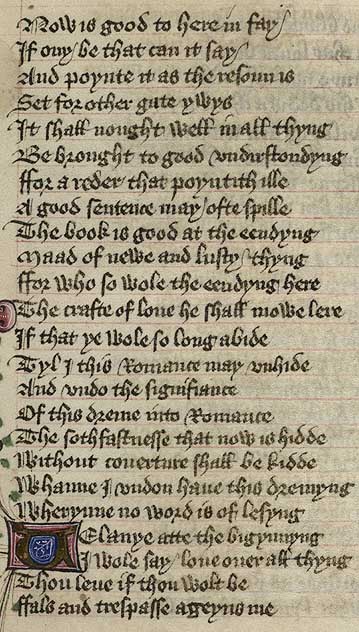 Now is good to here in fay
If ony be that can it say
And poynte it as the resoun is
Set for other gate ywys
It shall nought well in all thyng
Be brought to good vndirstondyng
ffor a reder that poyntith ille
A good sentence may ofte spille
The book is good at the eendyng
Maad of newe and lusty thyng
ffor who so wole the eendyng here
The crafte of loue he shall mowe lere
If that ye wole so long abide
Tyl I this Romance may vnhide
And vndo the signifiance
Of this dreme into Romance
The sothfastnesse that now is hidde
Without couerture shall be kidde
Whanne I vndon haue this dremyng
Wherynne no word is of lesyng
Velanye atte the bigynnyng
I wole say loue ouer all thyng
Thou leue if thou wolt be
ffals and trespasse ageyns me